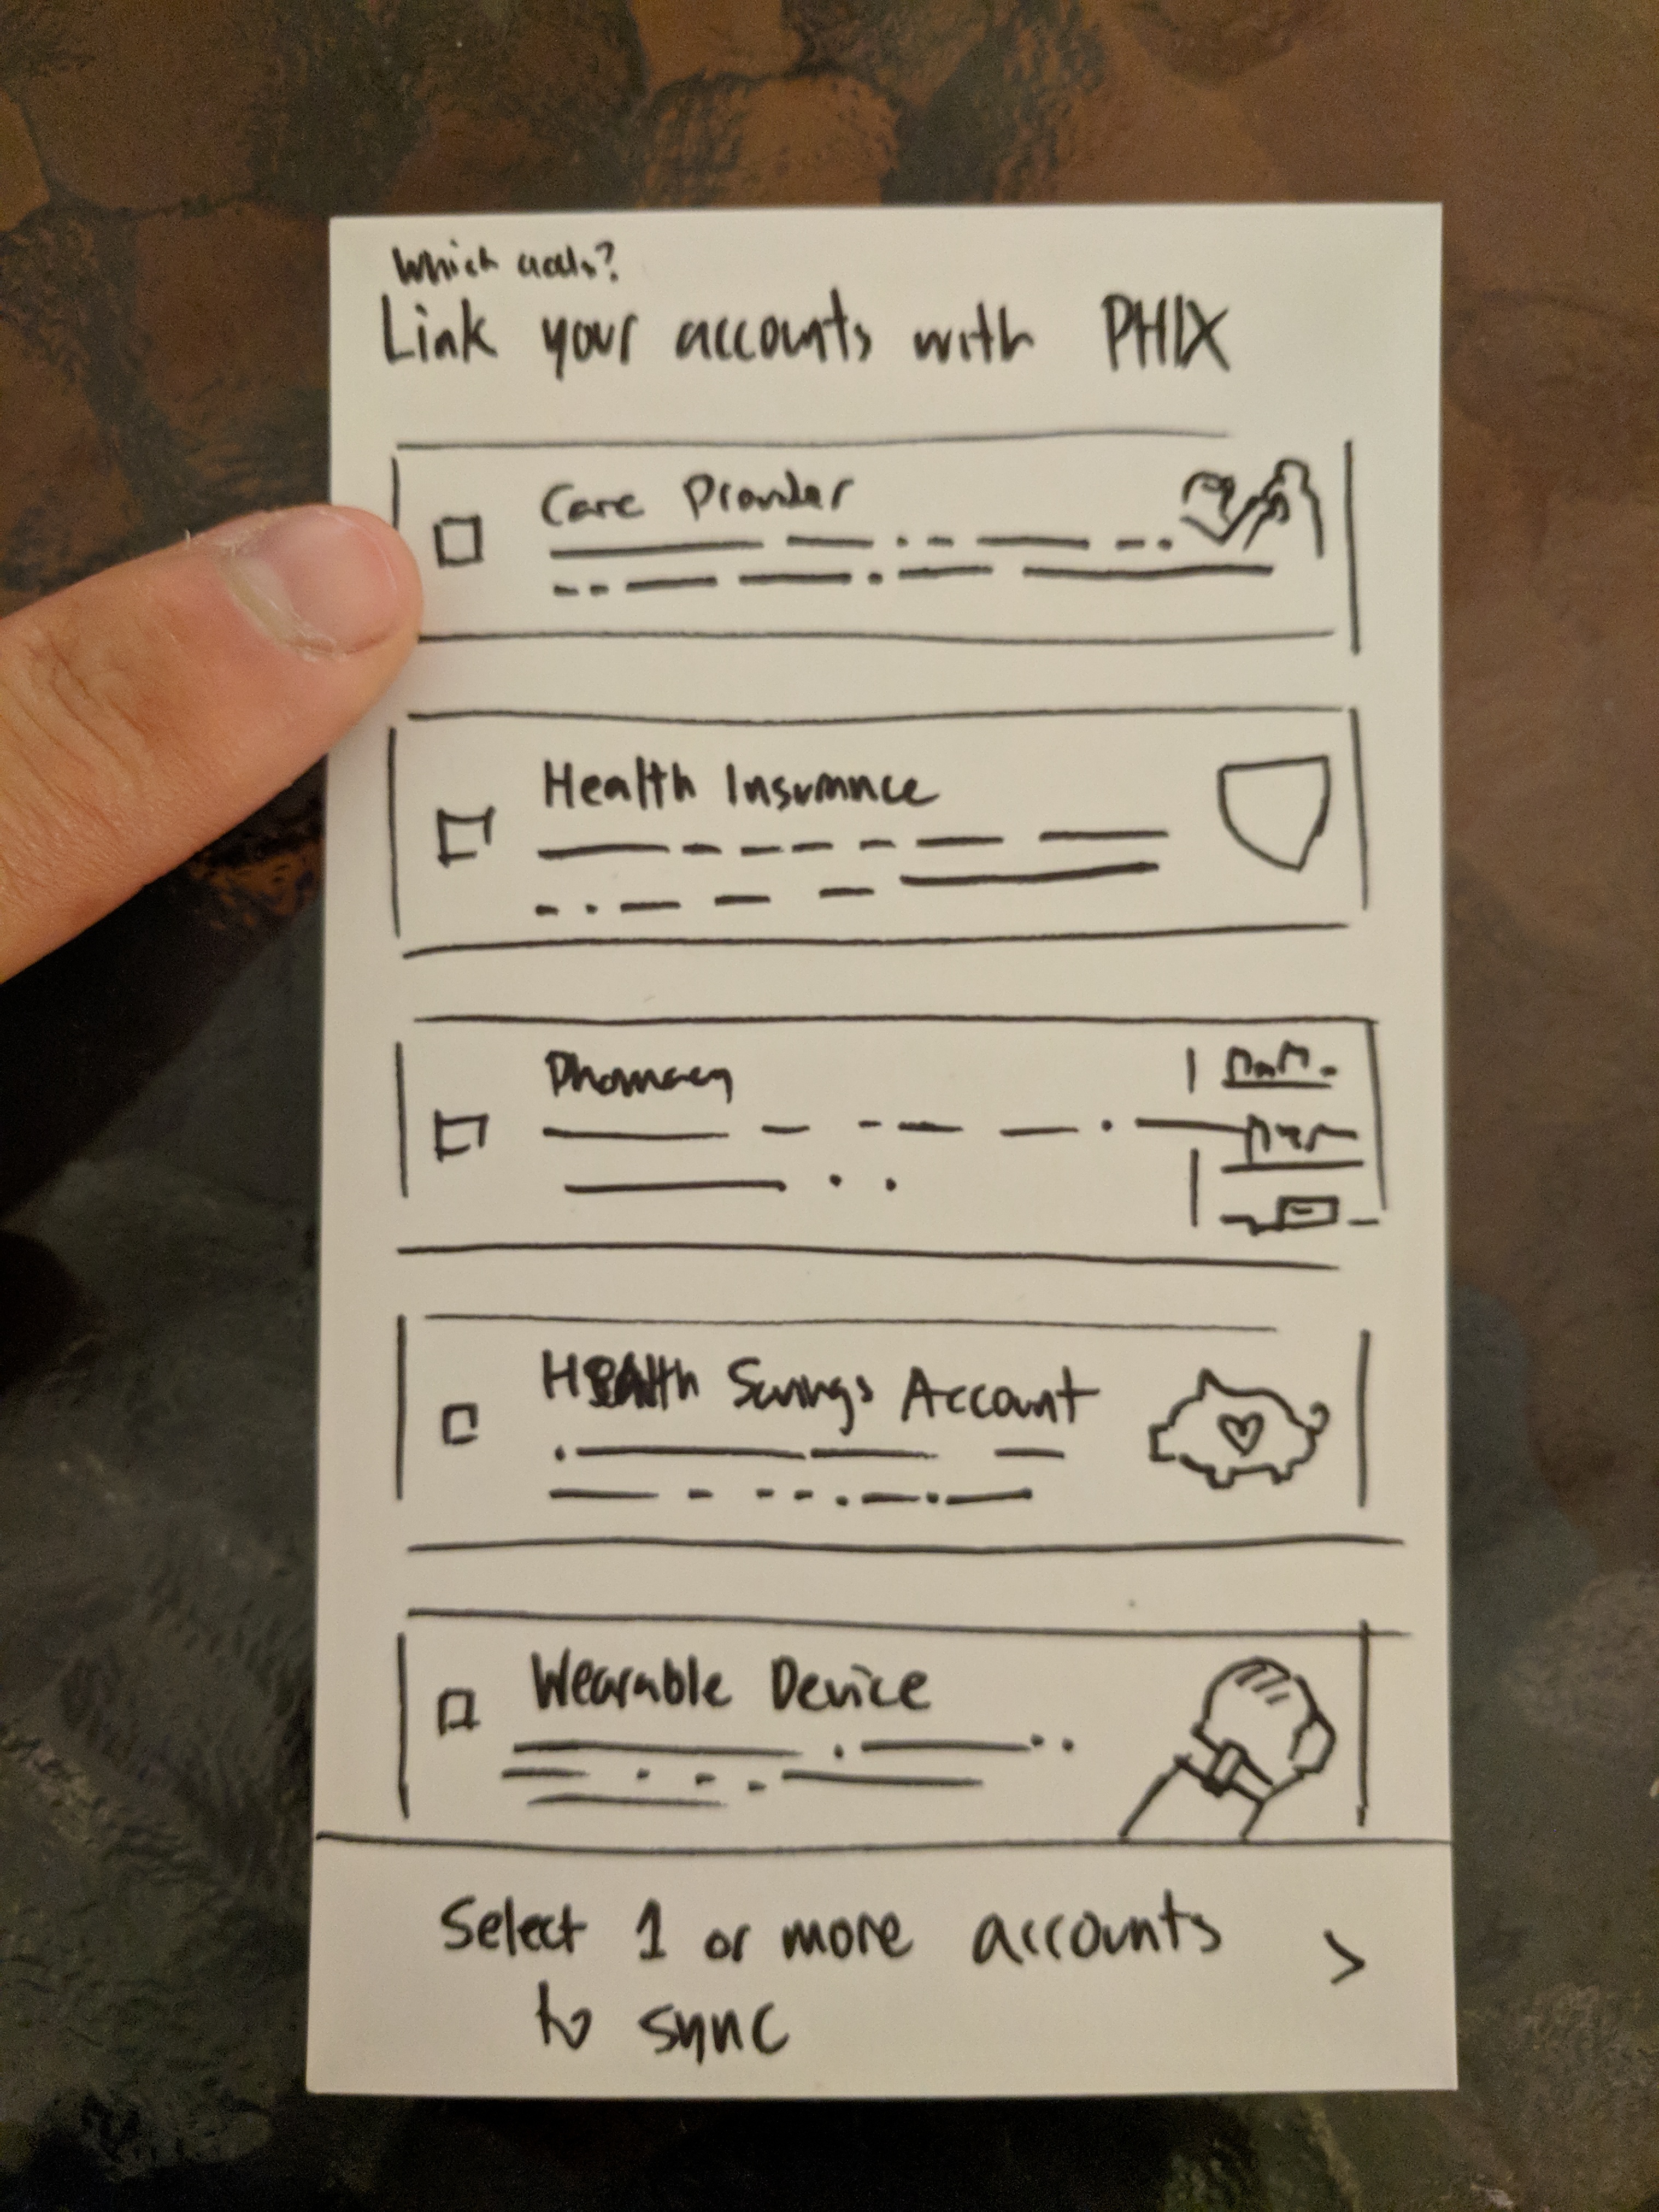 Which
Link your accounts with PHIX
Care Provider
Health Insurance
Pharmacy
Health Savings Account
Wearable Device
Select 1 or more accounts >
to sync